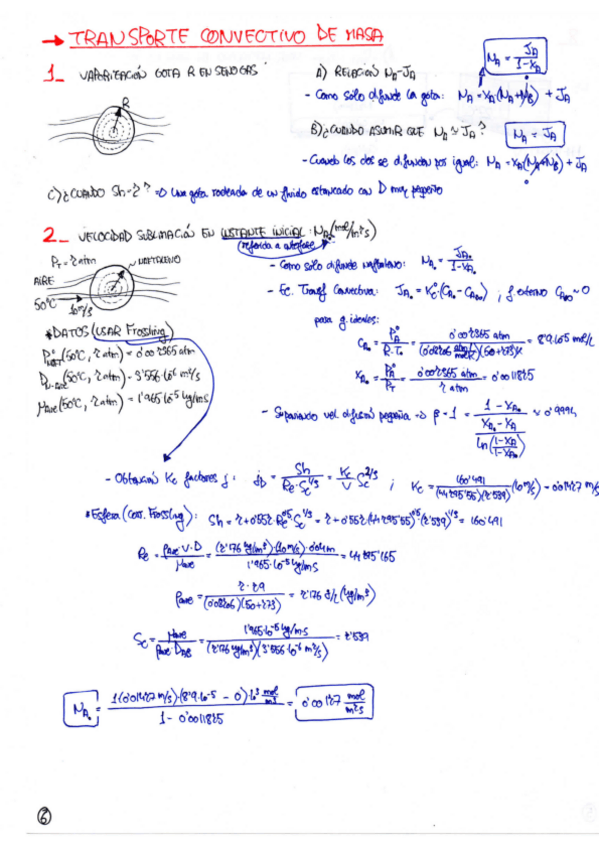 → TRANSPORTE CONVECTIVO DE MASA
1_ VAPORIZACIÓN GOTA R EN SENO GAS
R
A) RELACIÓN NA-JA
NA = JA/(1-xA)
- Como sólo difunde la gota: NA = xA(NA+NB) + JA
B) ¿CUANDO ASUMIR QUE NA ≃ JA?
NA = JA
- Cuando los dos se difunden por igual: NA = xA(NA+NB) + JA
C) ¿CUANDO Sh=2? ⇒ Una gota rodeada de un fluido estancado con D muy pequeño
2_ VELOCIDAD SUBLIMACIÓN EN INSTANTE INICIAL: NA₀(mol/m²s)
referida a interfase
PT = 2 atm
NAFTALENO
AIRE
50°C
10 m/s
- Como sólo difunde naftaleno: NA₀ = JA₀/(1-xA₀)
- Ec. Transf Convectiva: JA₀ = Kc(CA₀ - CA∞) ; CA∞ ≈ 0
*DATOS (USAR Frossling)
para g. ideales:
(50°C, 2 atm) = 0'002365 atm
(50°C, 2 atm) = 3'556·10⁻⁶ m²/s
μAIRE (50°C, 2 atm) = 1'965·10⁻⁵ kg/m·s
CA₀ = P°A/(R·T₀) = 0'002365 atm/((0'08206)(50+273)) = 8'9·10⁻⁵ mol/L
xA₀ = P°A/PT = 0'002365 atm/2 atm = 0'0011825
- Suponiendo vel difusión pequeña ⇒ β = 1 = (1-xA₀)/((xA₀-xA)/ln((1-xA)/(1-xA₀))) ≈ 0'9994
- Obtención Kc factores j: jD = Sh/(Re·Sc^1/3) = Kc/V Sc^2/3 ; Kc = 160'491/((44295'55)(2'539)) (10 m/s) = 0'01427 m/s
*Esfera (corr. Frossling): Sh = 2 + 0'552 Re^0'5 Sc^1/3 = 2 + 0'552(44295'55)^0'5 · (2'539)^1/3 = 160'491
Re = ρAIRE·V·D/μAIRE = (2'176 kg/m³)·(10 m/s)·0'04 m/(1'965·10⁻⁵ kg/m·s) = 44295'165
ρAIRE = 2·29/((0'08206)(50+273)) = 2'176 g/L (kg/m³)
Sc = μAIRE/(ρAIRE DAB) = 1'965·10⁻⁵ kg/m·s/((2'176 kg/m³)(3'556·10⁻⁶ m²/s)) = 2'539
NA₀ = 1(0'01427 m/s)·(8'9·10⁻⁵ - 0)·10³ mol/m³/(1 - 0'0011825) = 0'00127 mol/m²s
6